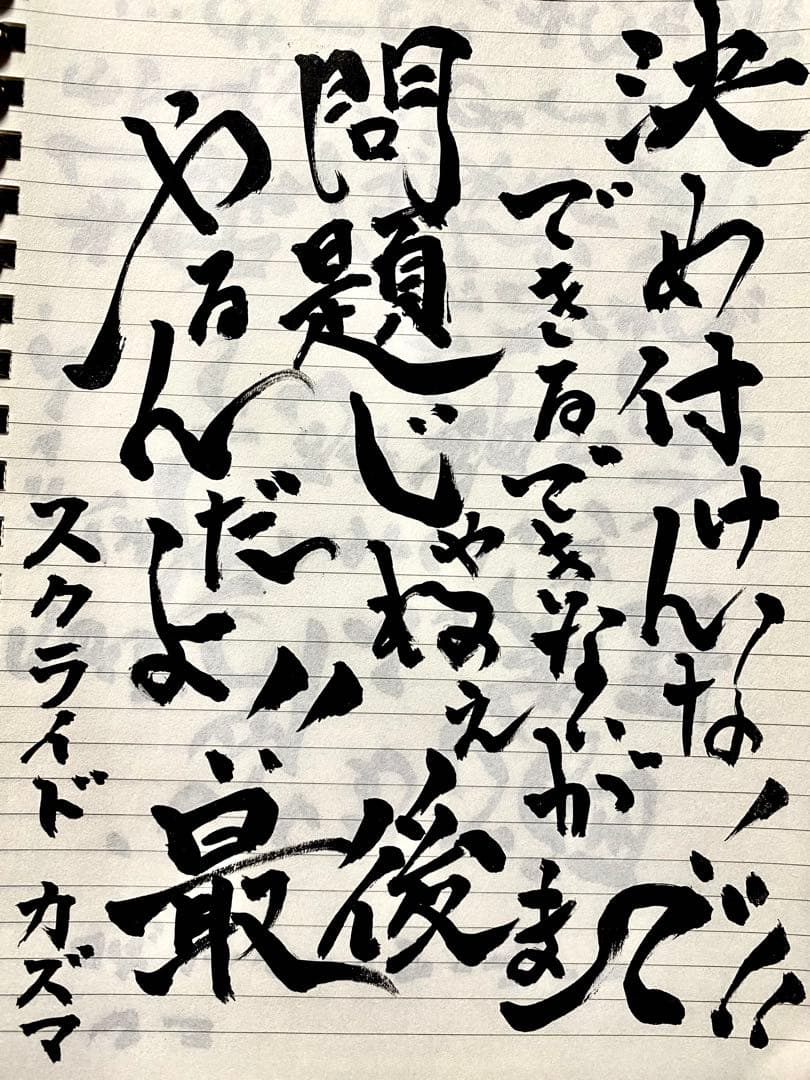 決め付けんな!
できるできないが
問題じゃねえ
やるんだよ!!
最後まで!!
スクライド カズマ